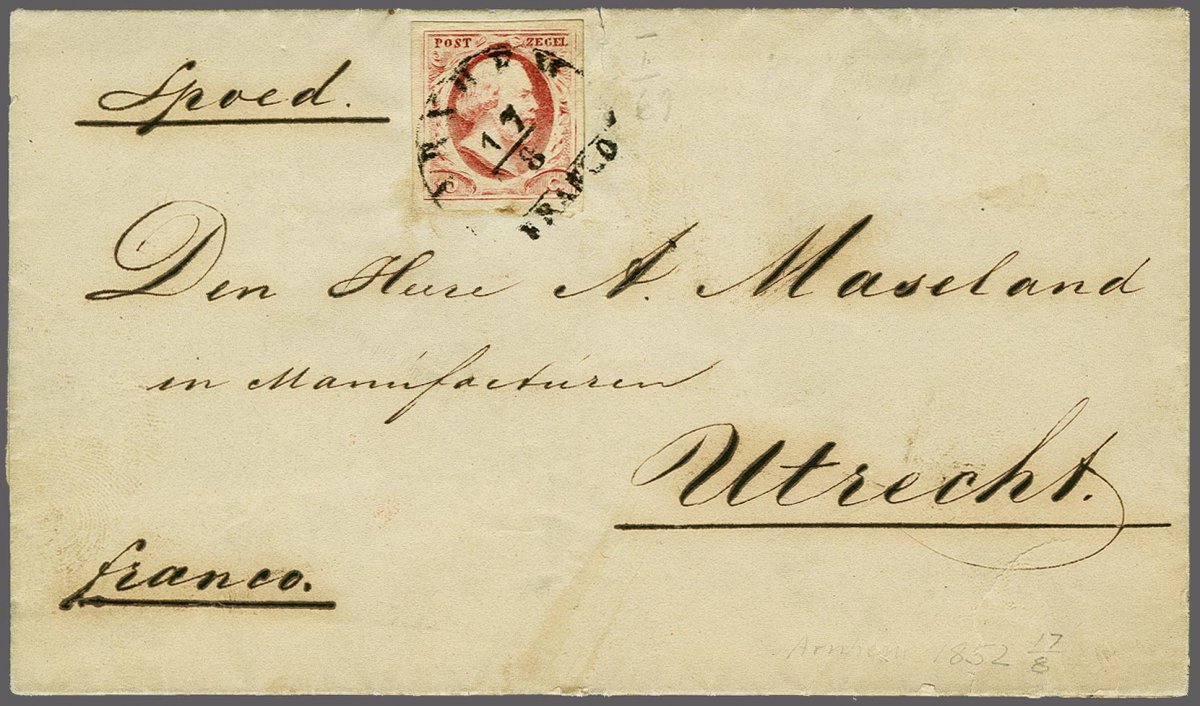 Spoed.
POST ZEGEL
ARNHEM
17/8
FRANCO
Den Heere A. Maseland
in Manúfactúren
Utrecht.
franco.
Arnhem 1852 17/8